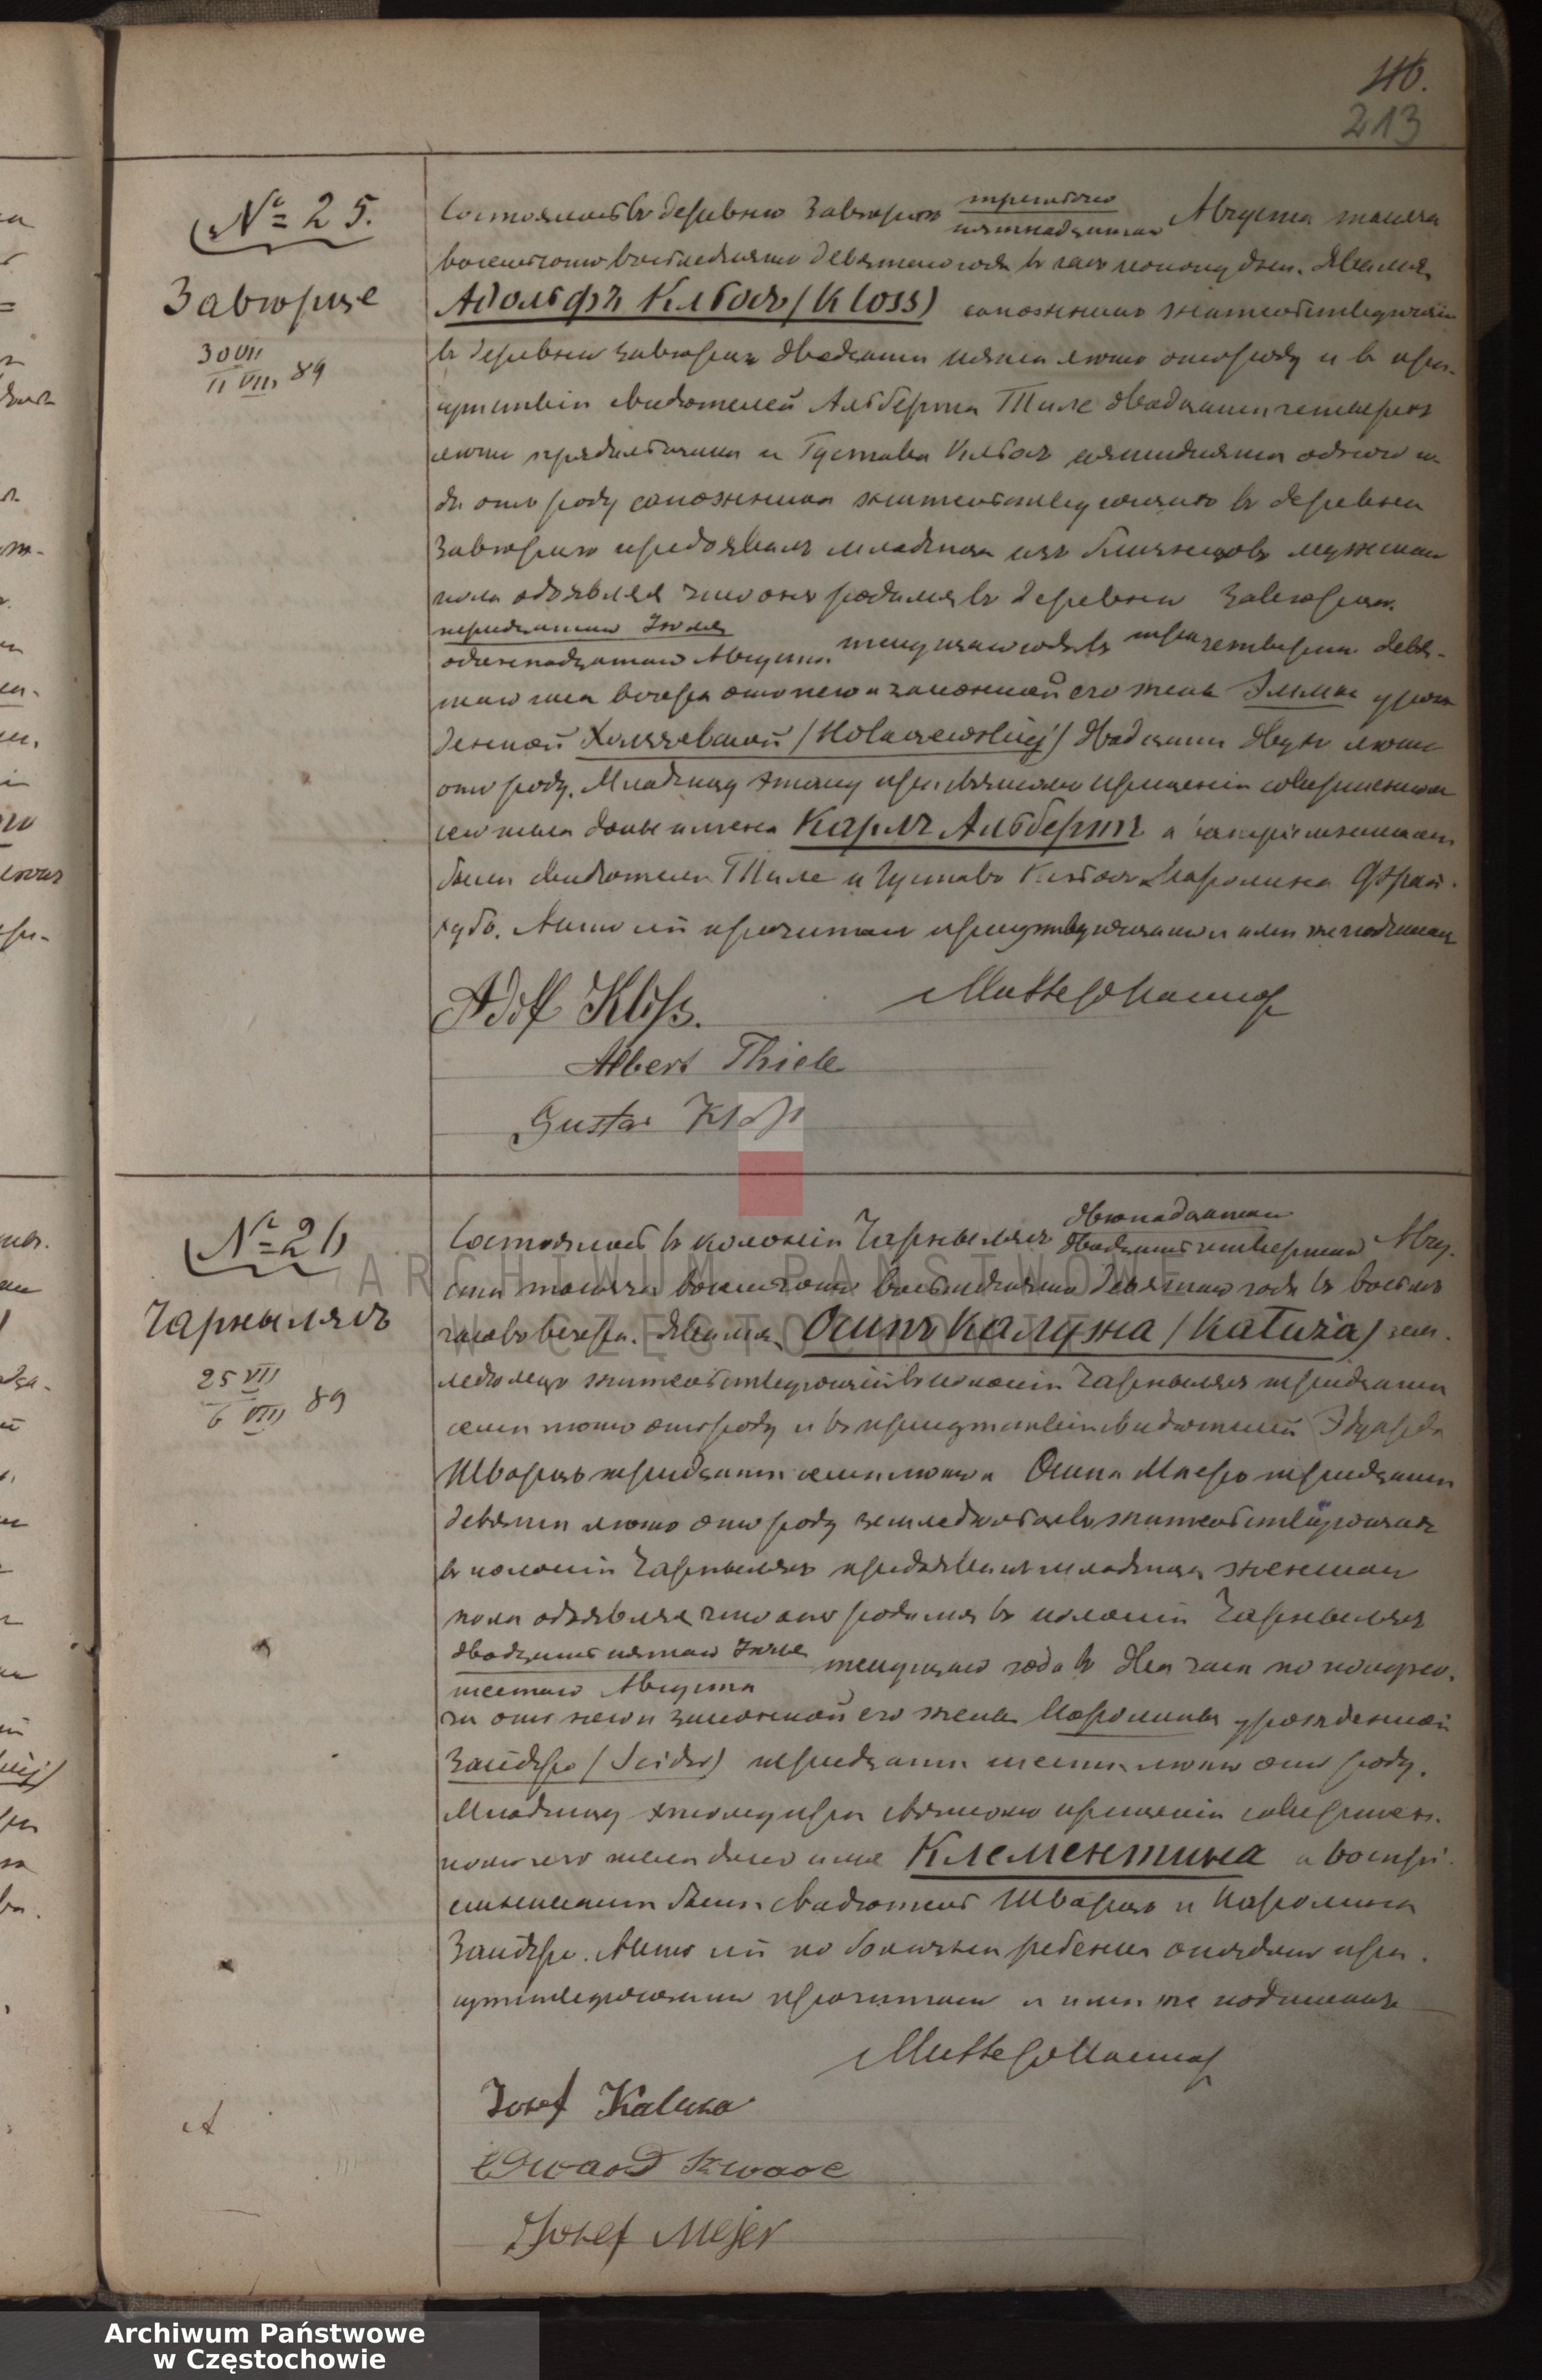 116.
213
№ 25.
Завюрже
30 VII
11 VIII 89
Состоялось въ деревне Завюрже третьяго
пятнадцатаго Августа тысяча
восемьсотъ восемьдесятъ девятаго года въ часъ пополудни. Явился
Адольфъ Кльосъ (Kloss) сапожникъ жительствующій
въ деревне Завюрже двадцати пяти летъ отъ роду и въ при-
сутствіи свидетелей Альберта Тиле двадцати четырехъ
летъ и Густава Кльосъ пятидесяти одного го-
да отъ роду сапожника жительствующихъ въ деревне
Завюрже предъявилъ младенца изъ близнецовъ мужскаго
пола объявляя что онъ родился въ деревне Завюрже
тридцатаго Іюля
одиннадцатаго Августа текущаго года въ три четверти девя-
таго часа вечера отъ него и законной его жены Эммы урож
денной (Kolaczewskiej) двадцати двухъ летъ
отъ роду. Младенцу этому при святомъ крещеніи совершенномъ
сего числа дано имена Карлъ Альбертъ а воспріемниками
были свидетели Тиле и Густавъ Кльосъ и Каролина
Актъ сей прочитанъ присутствующимъ и ими же подписанъ
Adolf Kloss.
Albert Thiele
Gustav Kloss
№ 26
Чарнылясъ
25 VII
6 VIII 89
Состоялось въ колоніи Чарнылясъ двенадцатаго
двадцать четвертаго Авгу-
ста тысяча восемьсотъ восемьдесятъ девятаго года въ восемь
часовъ вечера. Явился Осипъ Калужа (Kałuża) зем-
леделецъ жительствующій въ колоніи Чарнылясъ тридцати
семи летъ отъ роду и въ присутствіи свидетелей Эдуарда
Шварцъ тридцати семи летъ и Осипа Маеръ тридцати
девяти летъ отъ роду земледельцевъ жительствующихъ
въ колоніи Чарнылясъ предъявилъ младенца женскаго
пола объявляя что оно родился въ колоніи Чарнылясъ
двадцать пятаго Іюля
шестаго Августа текущаго года въ два часа по полудно-
чи отъ него и законной его жены Каролины урожденной
Зайдеръ (Seider) тридцати шести летъ отъ роду.
Младенцу этому при святомъ крещеніи совершен-
номъ сего числа дано имя Клементина а воспрі-
емниками были свидетель Шварцъ и Каролина
Зайдеръ. Актъ сей по болезни ребенка опозданъ при-
сутствующимъ прочитанъ и ими же подписанъ
Josef Kaluza
Edward Szwarc
Josef Mejer
ARCHIWUM PAŃSTWOWE
W CZĘSTOCHOWIE
Archiwum Państwowe
w Częstochowie